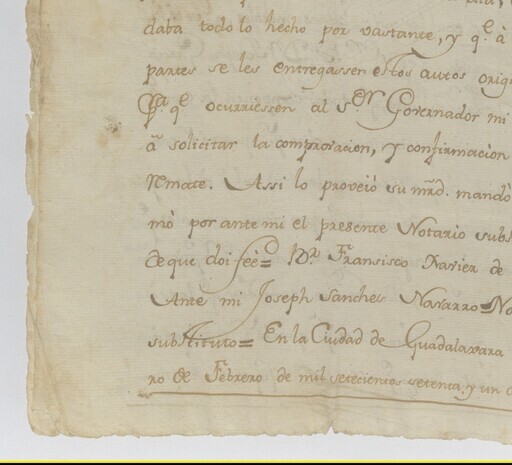 daba todo lo hecho por vastante, y q.e à
partes se les entregassen estos autos orig
P.a q.e ocurriessen al s.or Governador mi
à solicitar la comprovacion, y confirmaciòn
Rmate. Assi lo proveiò su mrd. mandò
mò por ante mi el presente Notario subs
de que doi feè= Br. Fransisco Xavier de
Ante mi Joseph Sanches Navarro=No
substituto= En la Ciudad de Guadalaxara
ro de Febrero de mil setecientos setenta, y un